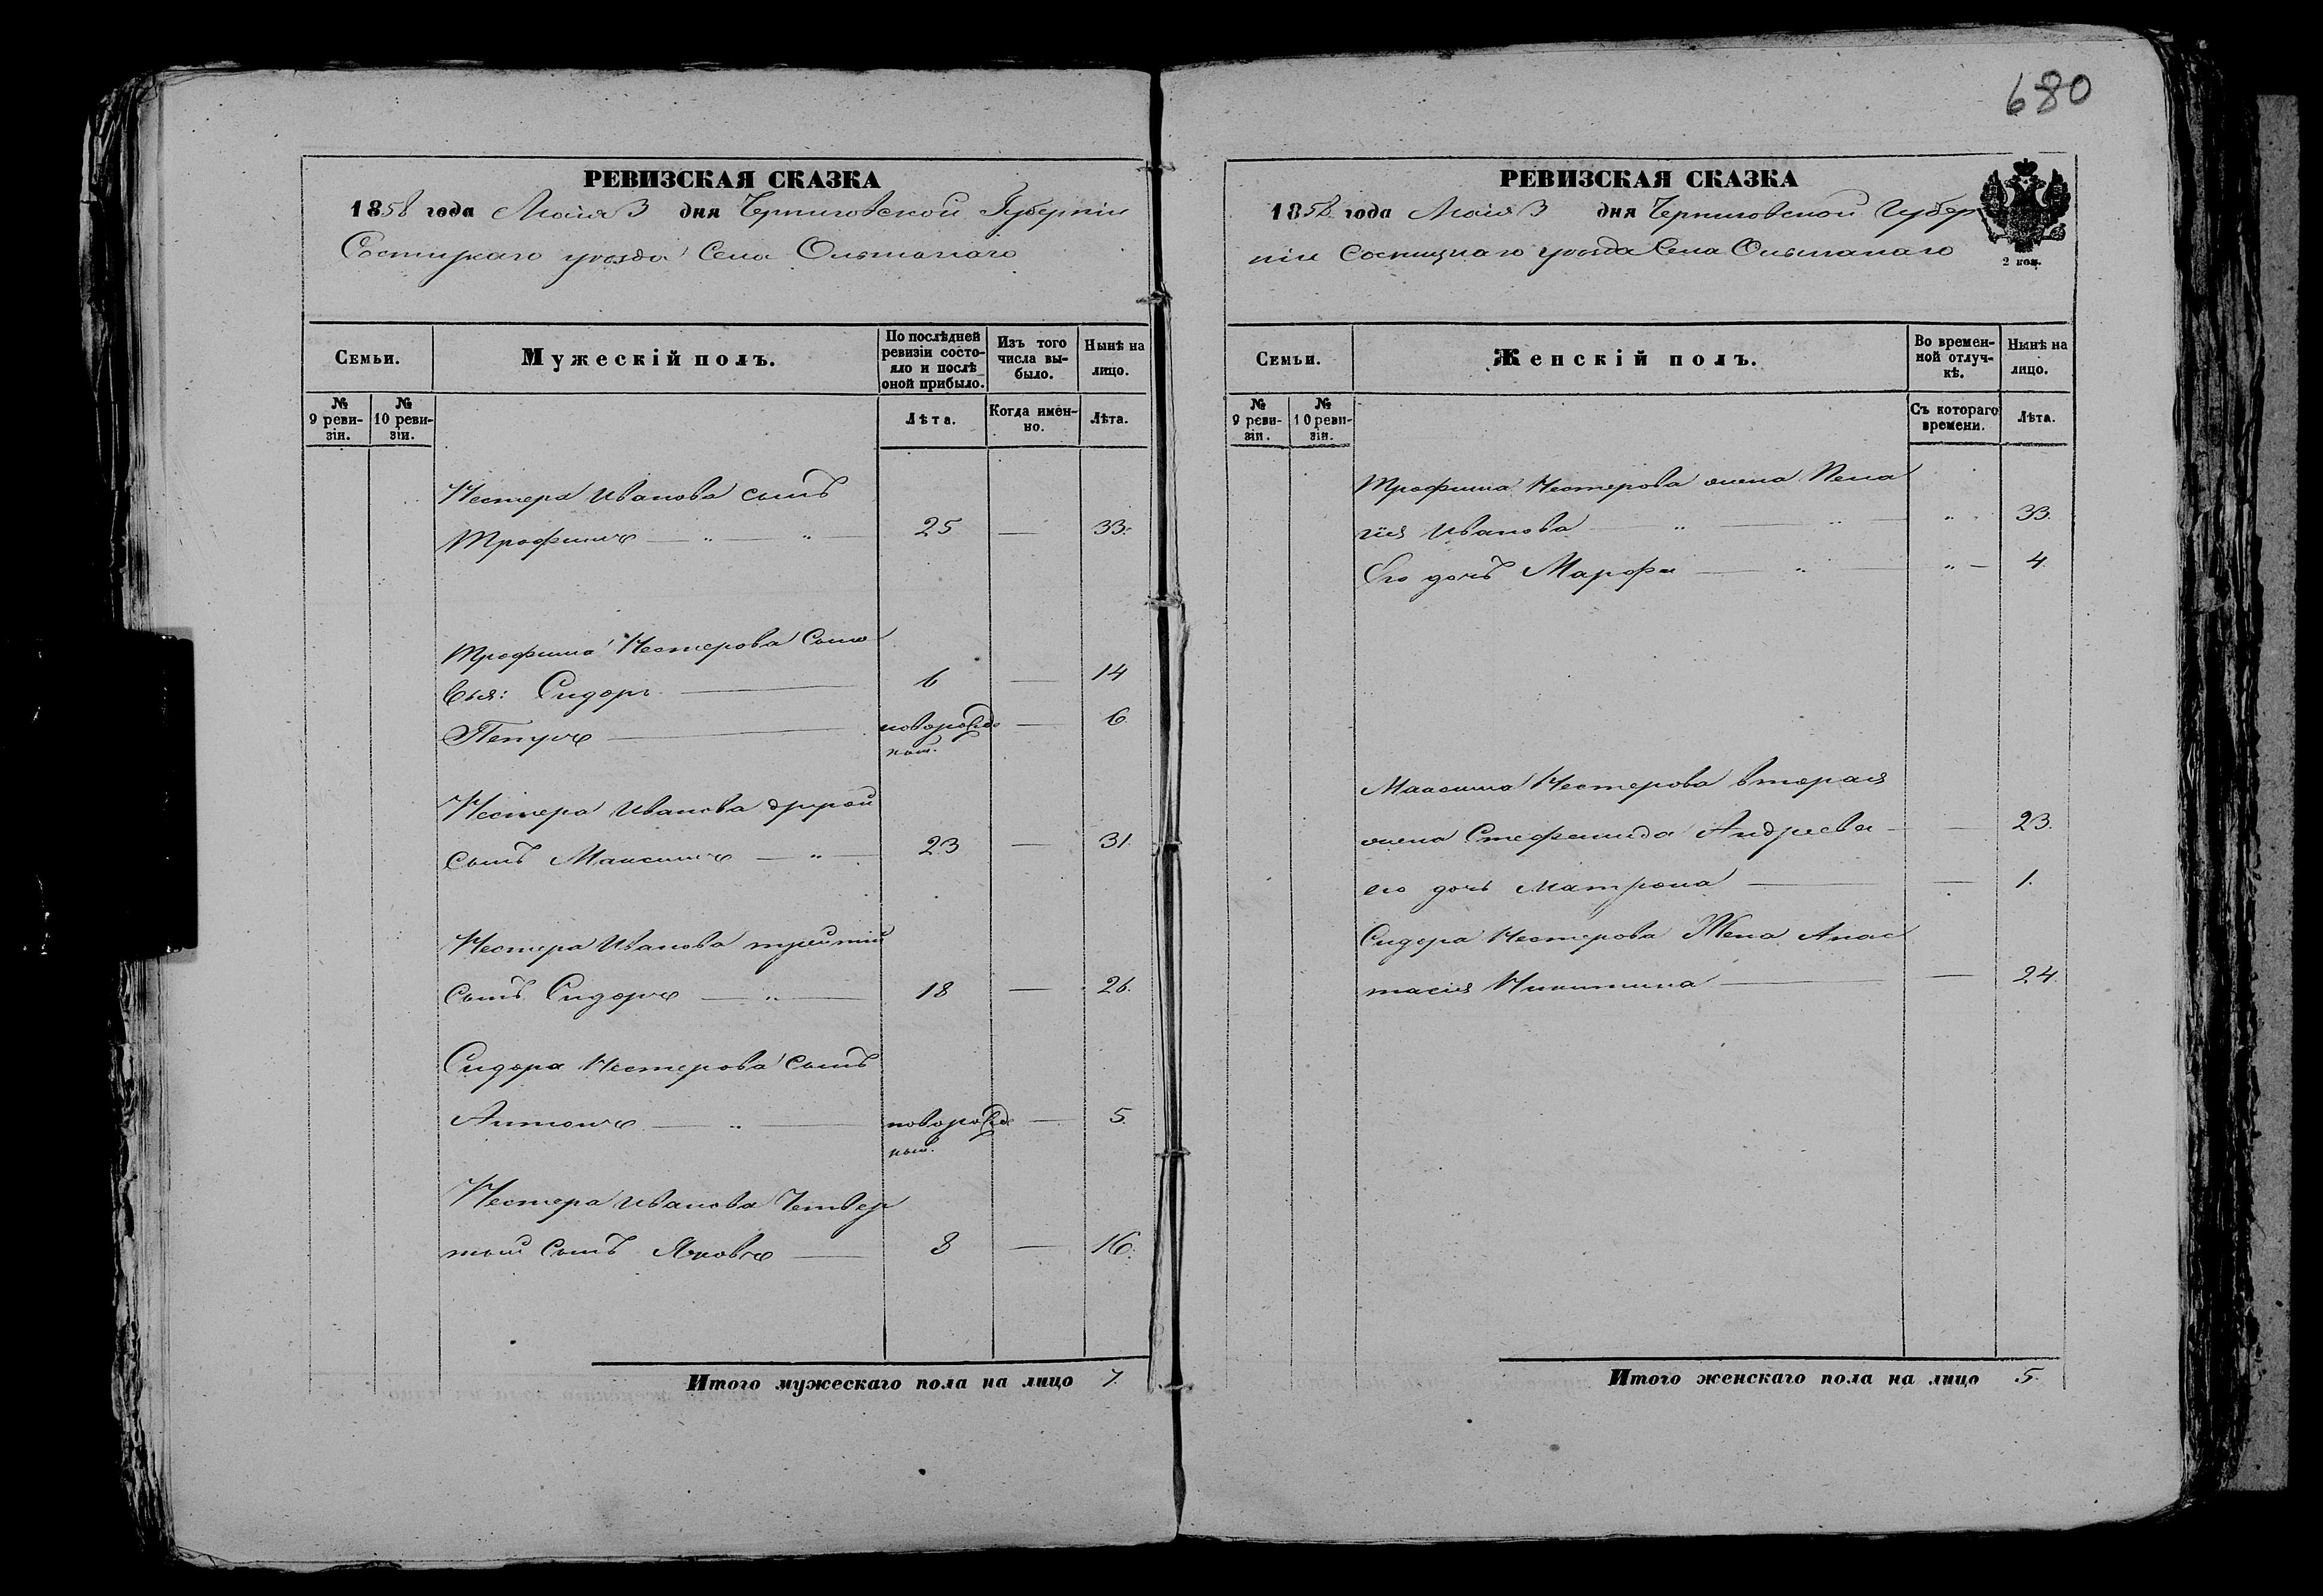 680
РЕВИЗСКАЯ СКАЗКА
1858 года Мая 3 дня Черниговской Губерніи
Сосницкаго уезда Села Ольшанаго
Семьи.
Мужескій полъ.
По послѣдней ревизіи состояло и послѣ оной прибыло.
Изъ того числа выбыло.
Нынѣ на лицо.
№ 9 ревизіи.
№ 10 ревизіи.
Лѣта.
Когда именно.
Лѣта.
Нестера Иванова сынъ
Трофимъ — „ — „ — 25 — 33.
Трофима Нестерова сыно
вья: Сидоръ — 6 — 14
Петръ — новорожд — 6.
ный.
Нестера Иванова другой
сынъ Максимъ — „ — 23 — 31.
Нестера Иванова третій
сынъ Сидоръ — „ — 18 — 26.
Сидора Нестерова сынъ
Антонъ — „ — новорожд — 5.
ный.
Нестера Иванова Четвер
тый сынъ Яковъ — 8 — 16.
Итого мужескаго пола на лицо 7.
РЕВИЗСКАЯ СКАЗКА
1858 года Мая 3 дня Черниговской Губер
ніи Сосницкаго уезда Села Ольшанаго
2 коп.
Семьи.
Женскій полъ.
Во временной отлучкѣ.
Нынѣ на лицо.
№ 9 ревизіи.
№ 10 ревизіи.
Съ котораго времени.
Лѣта.
Трофима Нестерова жена Пела
гія Иванова „ — „ — „ 33.
Его дочь Марфа — „ — „ — 4.
Максима Нестерова вторая
жена Стефанида Андреева — — 23.
его дочь Матрона — — 1.
Сидора Нестерова Жена Анас
тасія Никитина — — 24.
Итого женскаго пола на лицо 5.